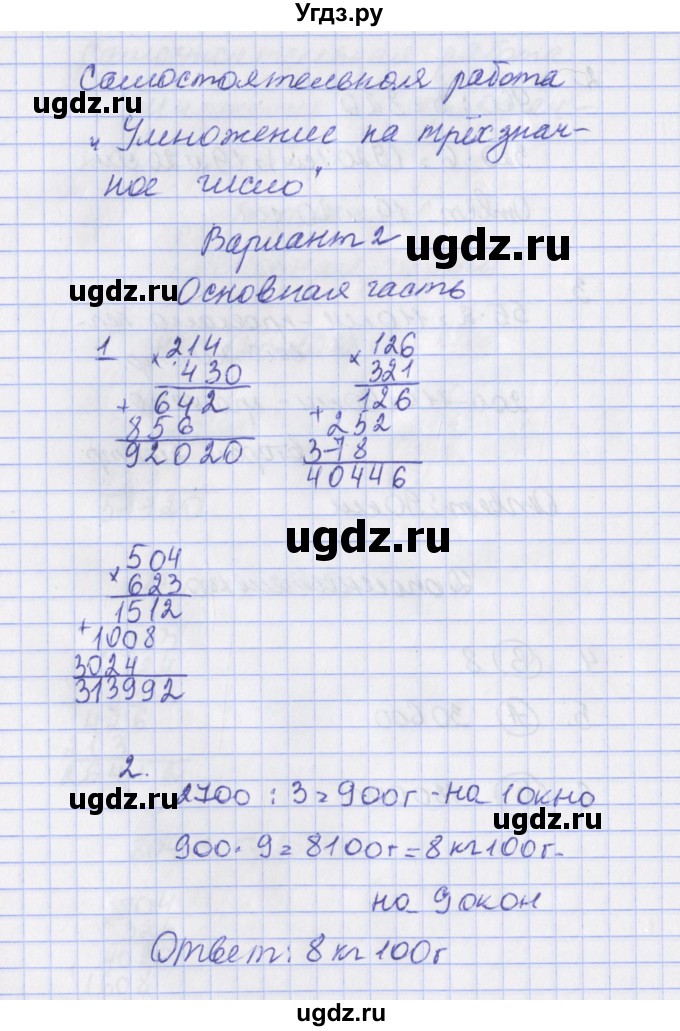 Угдз.ру
Самостоятельная работа
„Умножение на трёхзнач-
ное число"
Вариант 2
Основная часть
1
× 214
430
+ 642
856
92020
× 126
321
126
+ 252
378
40446
× 504
623
1512
+ 1008
3024
313992
2.
2700 : 3 = 900 г - на 1 окно
900 · 9 = 8100 г = 8 кг 100 г -
на 9 окон
Ответ: 8 кг 100 г
ugdz.ru
ugdz.ru
ugdz.ru
ugdz.ru
ugdz.ru
ugdz.ru
ugdz.ru
ugdz.ru
ugdz.ru
ugdz.ru